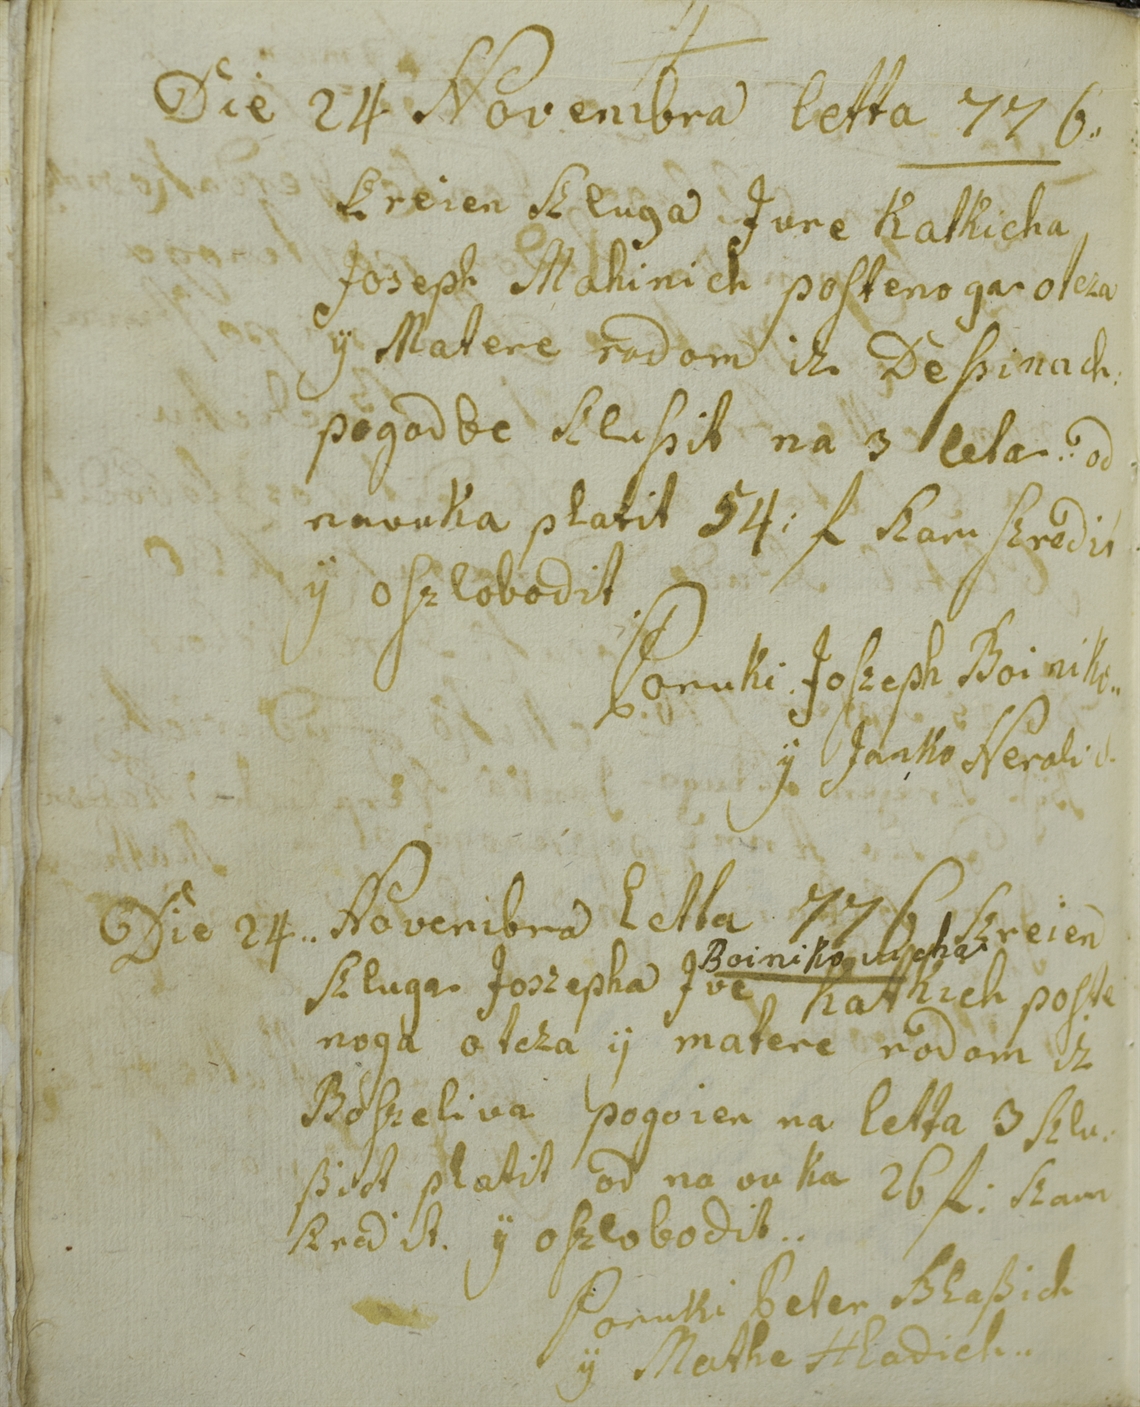 Die 24 Novembra letta 776..
Szreien Szluga Jure Katkicha
Joseph Mahinich postenoga otcza
ÿ Matere rodom iz Deßinach:
pogodbe Szlußit na 3 leta: od
nauuka platit 54: f Szam szredit
ÿ oszlobodit
Poruki Joszeph Boiniko..
ÿ Janko Neralich
Die 24.. Novembra letta 776 Szreien
Boinikovicha
Szluga Joszepha Jve Katkich poste
noga otcza ÿ matere rodom iz
Boszeliva pogoien na letta 3 Szlu.
ßict platit od nauuka 26 f: Szam
Szredit. ÿ oszlobodit..
Poruki Peter Blaßich
ÿ Mathe Hladich..